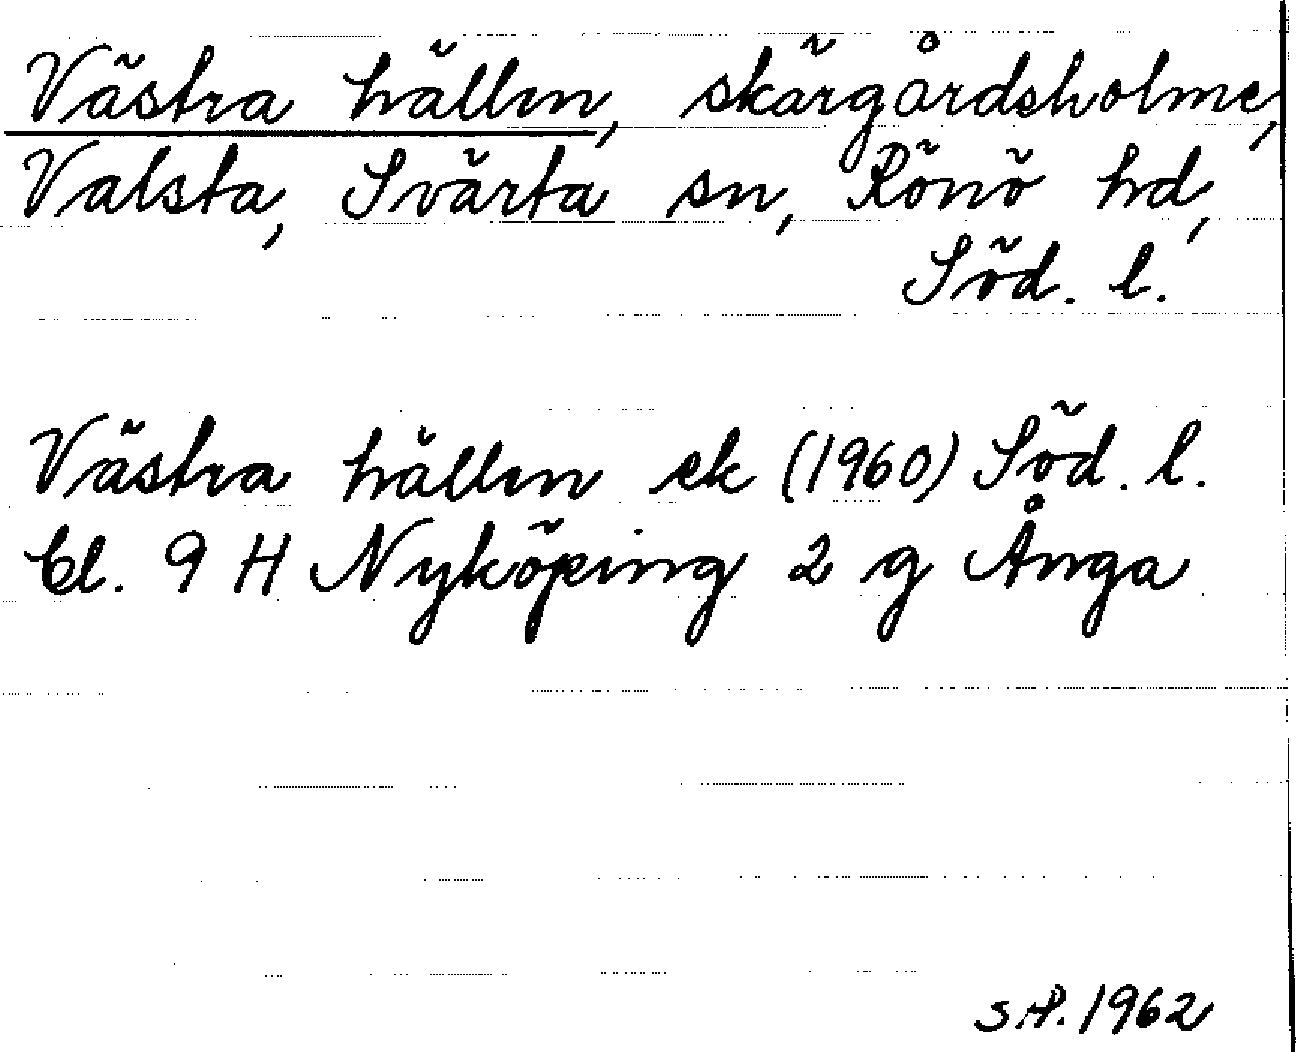 Västra hällen, skärgårdsholme,
Valsta, Svärta sn, Rönö hd,
Söd. l.
Västra hällen ek (1960) Söd. l.
bl. 9 H Nyköping 2 g Ånga
S.P. 1962